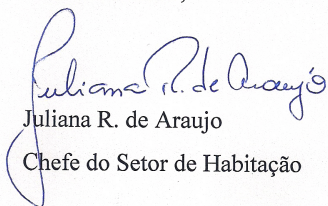 Juliana R. de Araujo
Juliana R. de Araujo
Chefe do Setor de Habitação